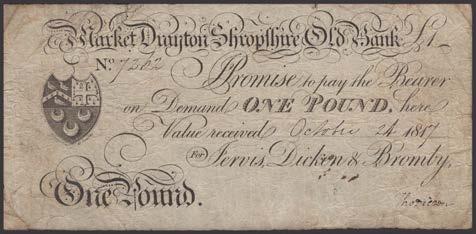 Market Drayton Shropshire Old Bank £1
No. 7262
I Promise to pay the Bearer
on Demand ONE POUND. here
Value received October 24 1817
For Jervis, Dicken & Bromby.
One Pound.